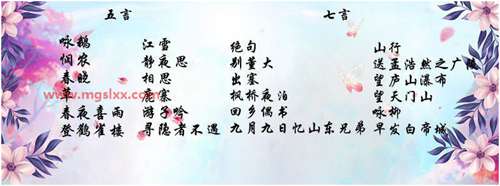 五言 七言
咏鹅 江雪 绝句 山行
悯农 静夜思 别董大 送孟浩然之广陵
春晓 相思 出塞 望庐山瀑布
www.mgslxx.com
草 鹿寨 枫桥夜泊 望天门山
春夜喜雨 游子吟 回乡偶书 咏柳
登鹤雀楼 寻隐者不遇 九月九日忆山东兄弟 早发白帝城